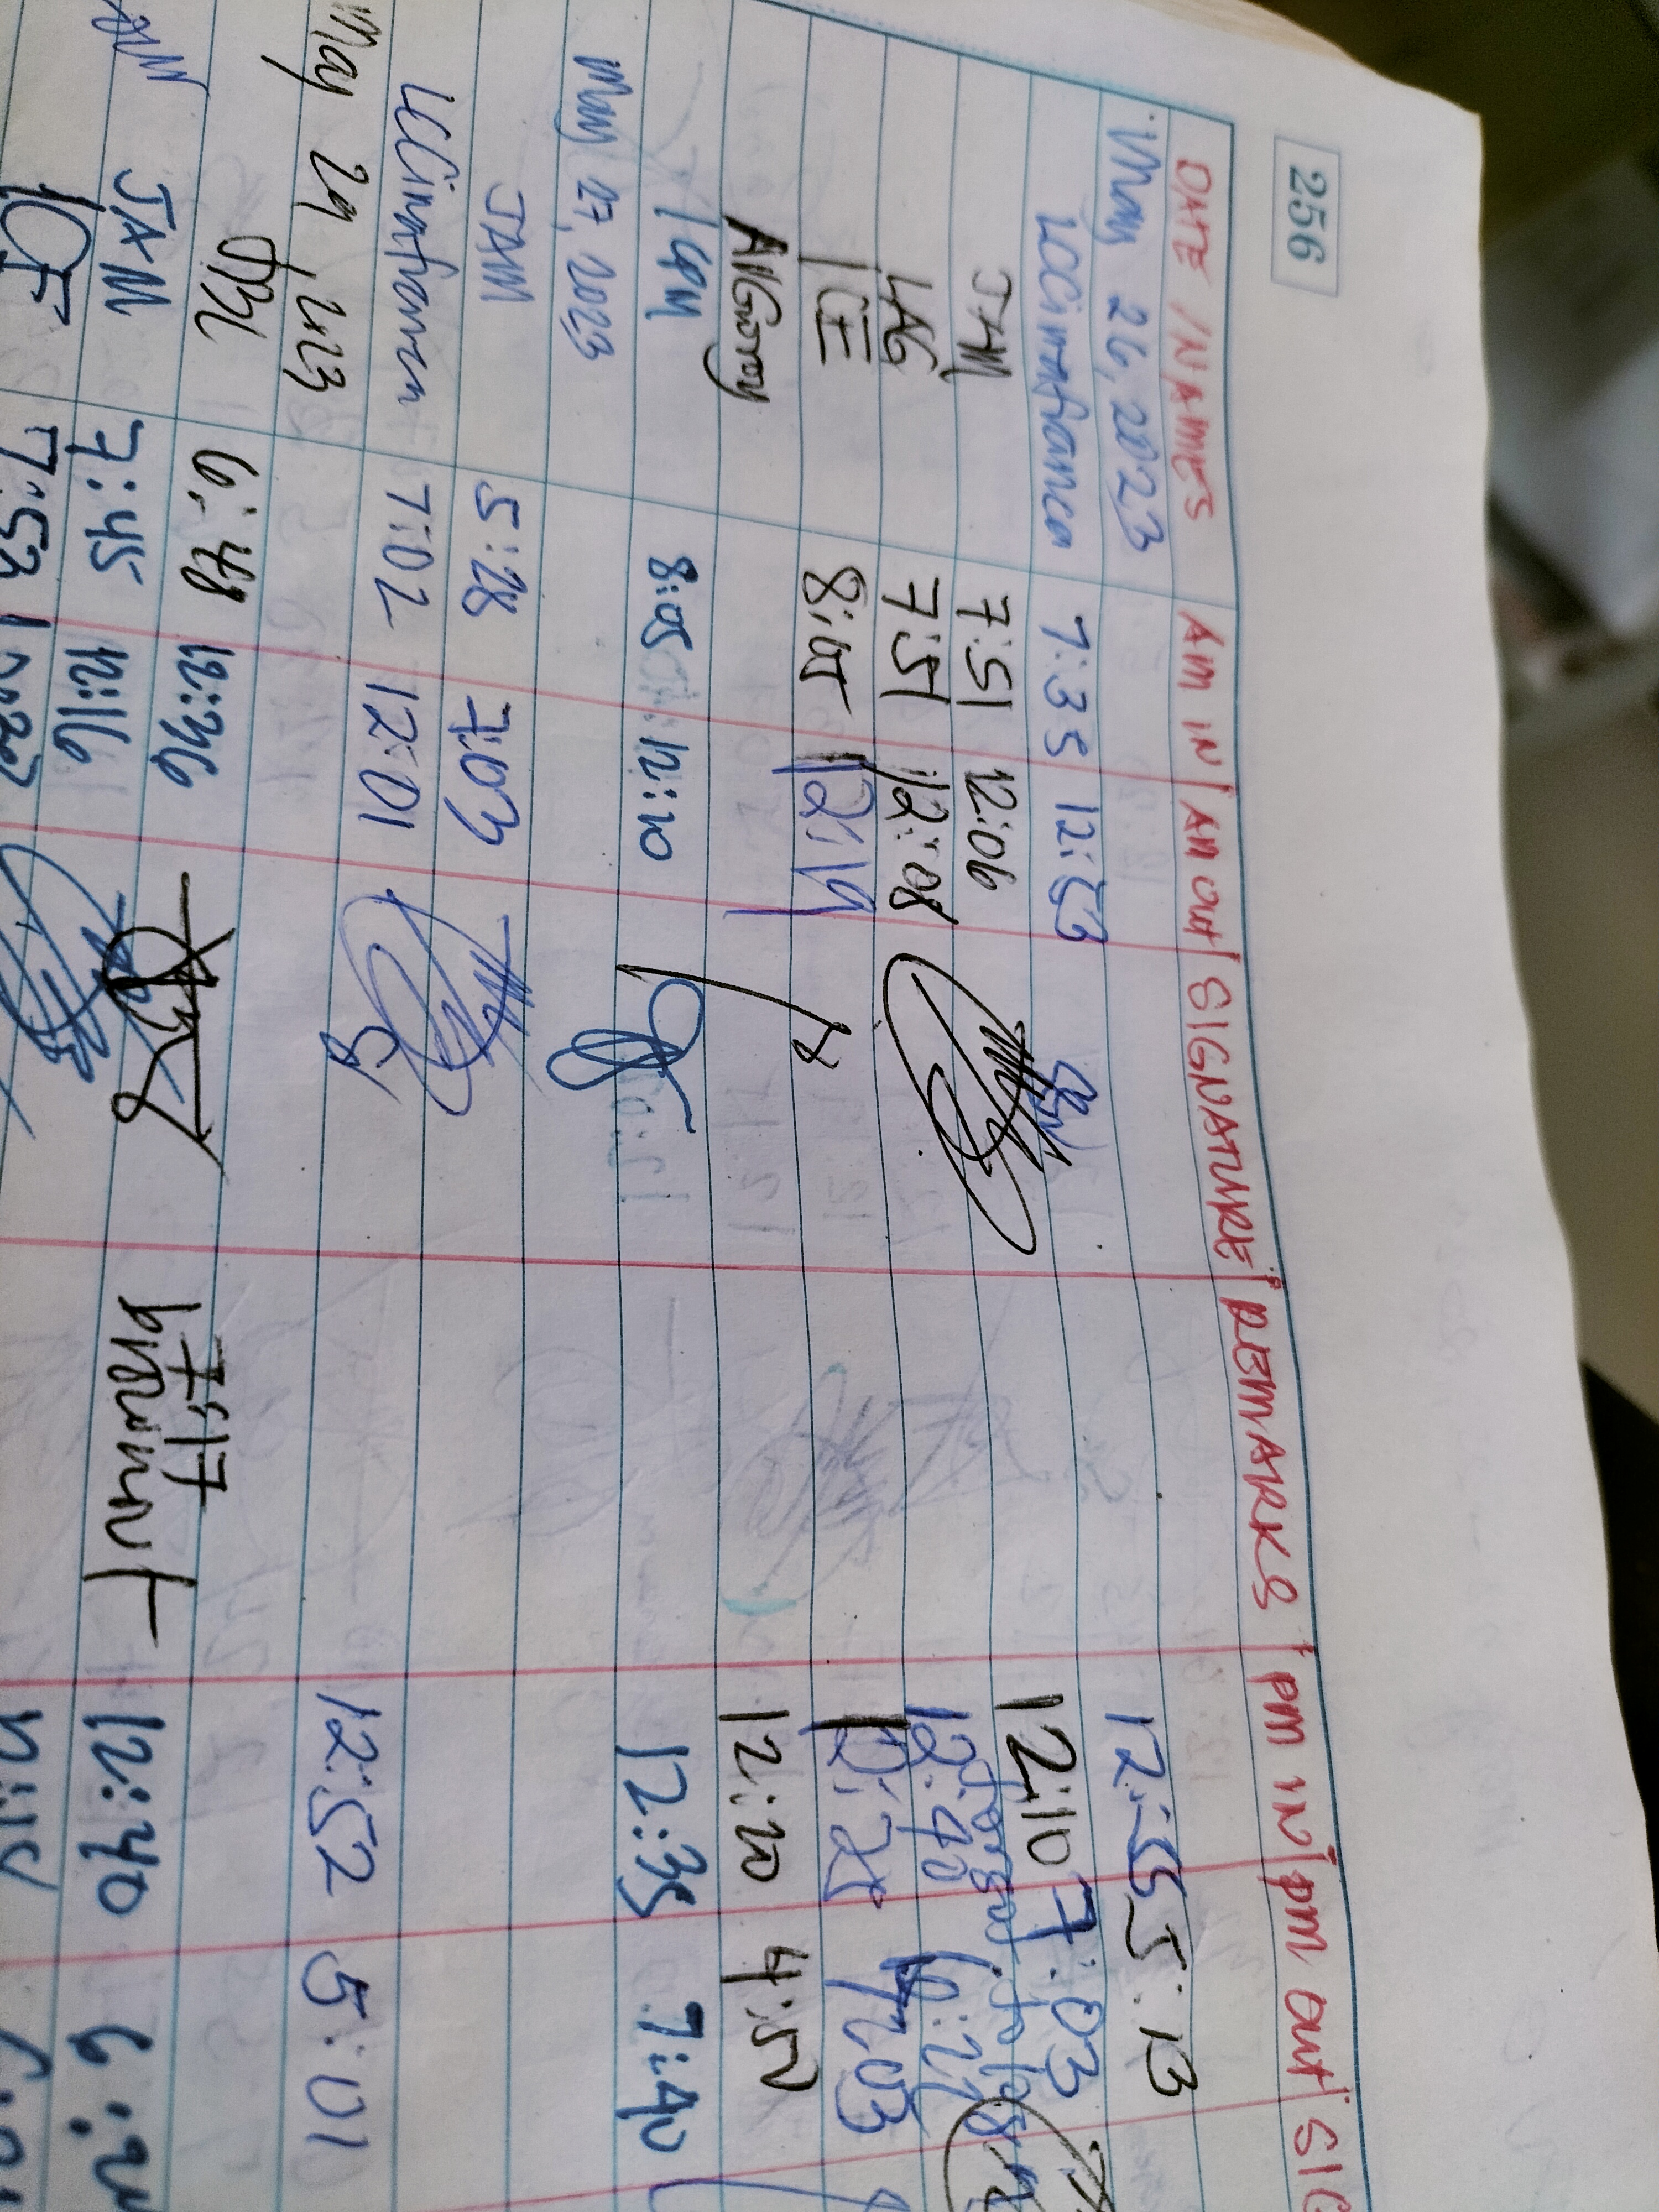 256
DATE / NAMES | AM IN | AM OUT | SIGNATURE | REMARKS | PM IN | PM OUT | SIG
May 26, 2023
LCCimafranca 7:35 12:53 12:55 5:13
JAM 7:51 12:06 12:10 7:03
LAG 7:51 12:08 12:40
ICF 8:05 12:19 7:03
12:20 4:50
8:05 12:20 12:35 7:40
May 27, 2023
JAM 5:28 7:03
LCCimafranca 7:02 12:01 12:52 5:01
May 29, 2023
6:48 12:36 7:17
JAM 7:45 12:16 12:40
ICF 7:52